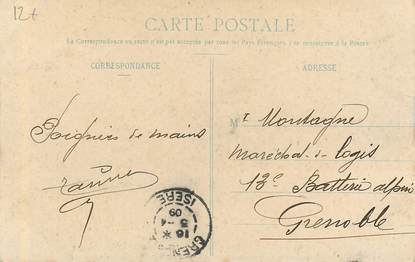 12+
CARTE POSTALE
La Correspondance au recto n'est pas acceptée par tous les Pays Étrangers. (Se renseigner à la Poste)
CORRESPONDANCE
ADRESSE
Poignées de mains
Mr Montagne
Maréchal-de logis
13e Batterie alpin
Grenoble
ISERE
16 * 5-4
09